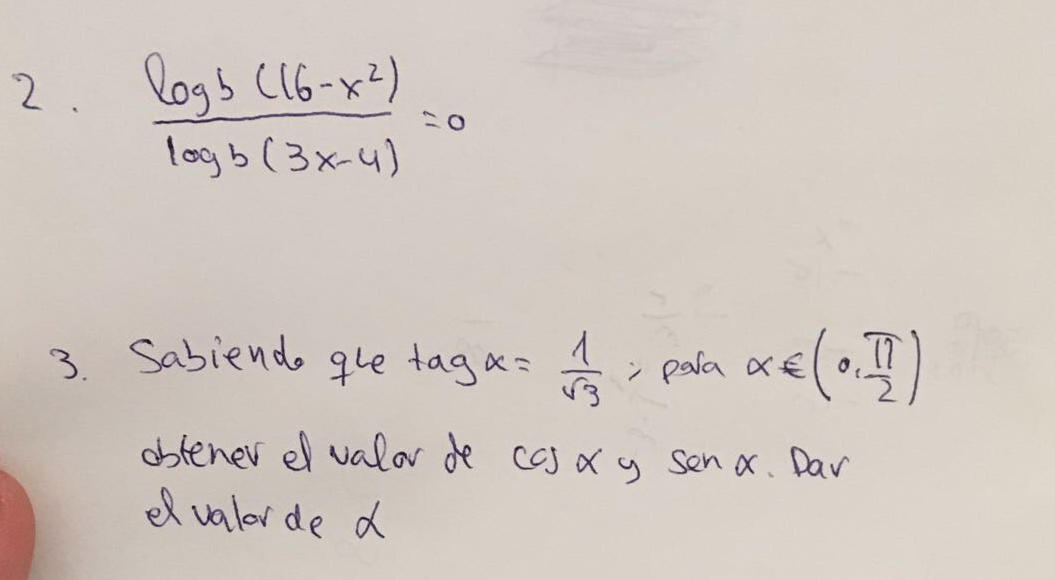 2. log b (16-x²)
log b (3x-4) =0
3. Sabiendo que tag α = 1/√3 ; para α ∈ (0, π/2)
obtener el valor de cos α y sen α. Dar
el valor de α